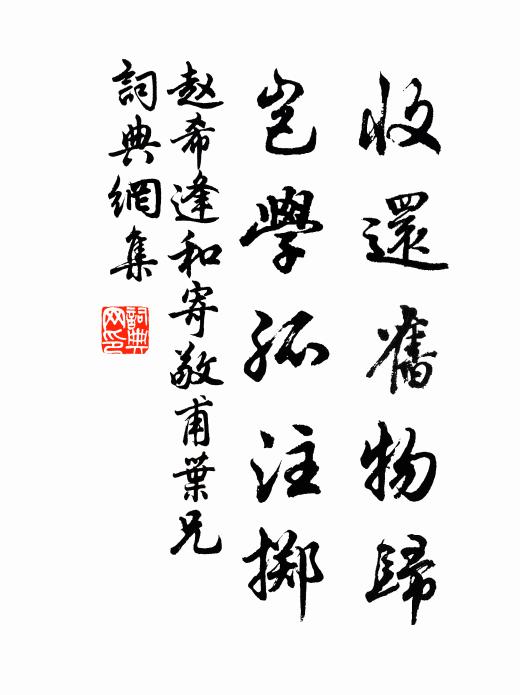 收還舊物歸
豈學孤注擲
赵希逢和寄敬甫葉兄
詞典網集
詞典网印